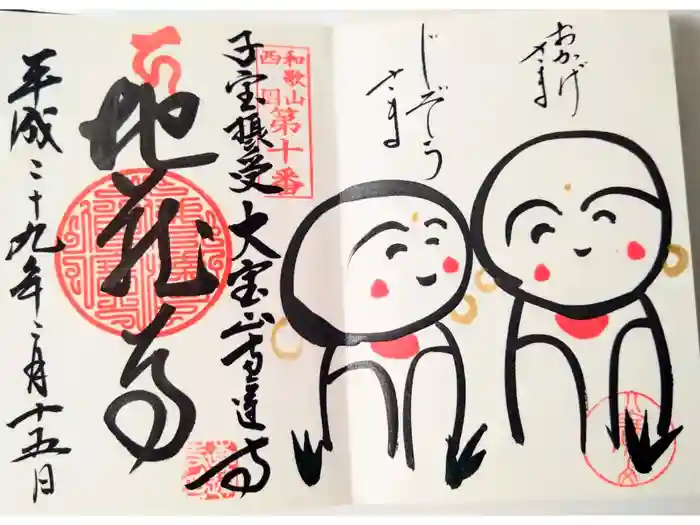 おかげ
さま
じぞう
さま
和歌山
西国
第十番
子宝摂受 大宝山
地蔵
平成二十九年二月十五日